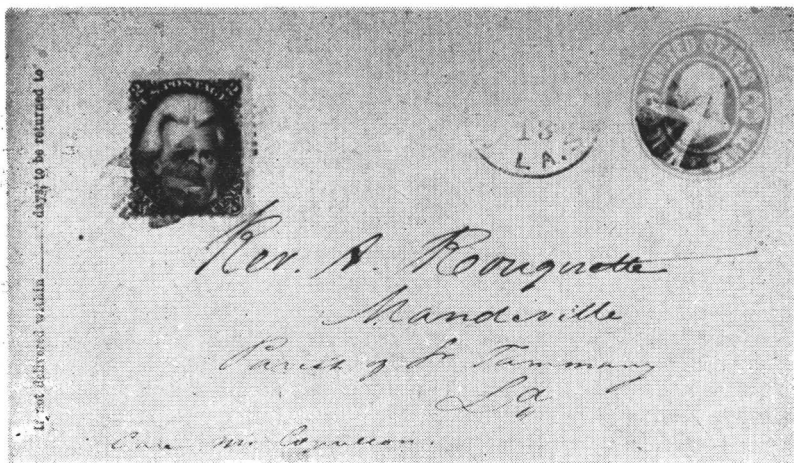 If not delivered within ______ days, to be returned to
U. S. POSTAGE
18
LA.
UNITED STATES
Rev. A. Rouquette
Mandeville
Parish of St Tammany
La
Care Mr